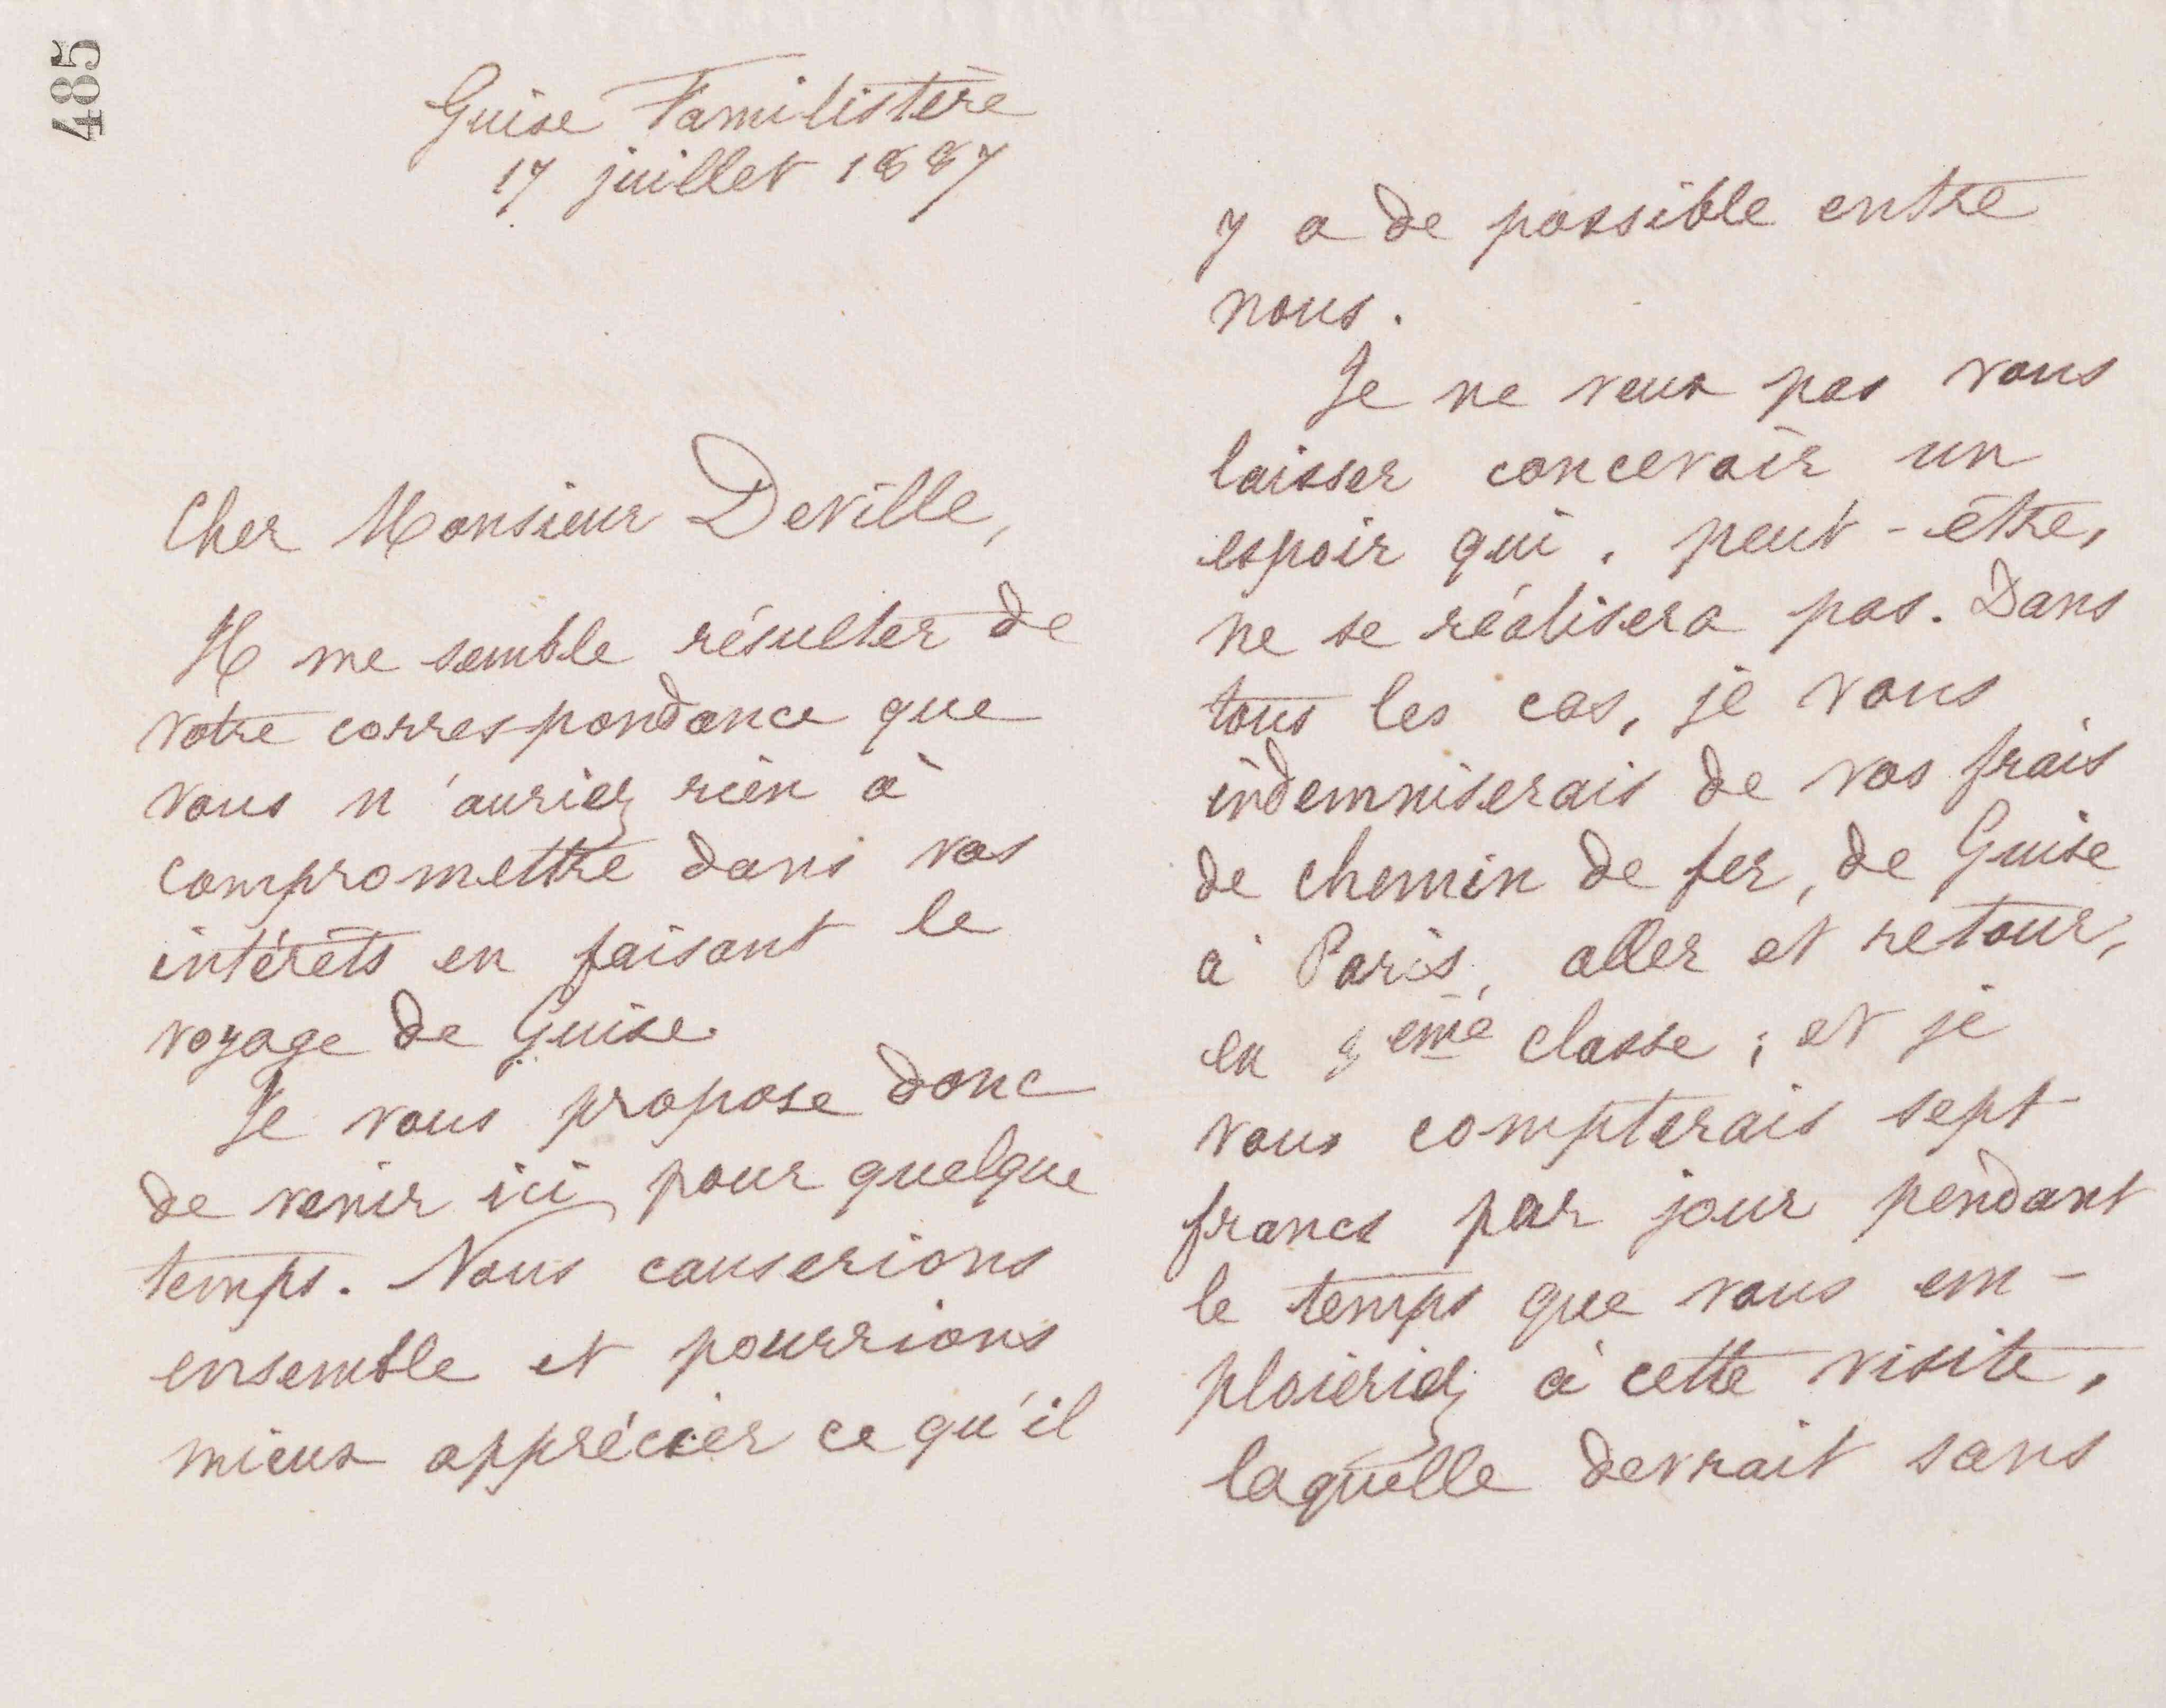 485
Guise Familistère
17 juillet 1887
Cher Monsieur Deville,
Il me semble résulter de
votre correspondance que
vous n'auriez rien à
compromettre dans vos
intérêts en faisant le
voyage de Guise.
Je vous propose donc
de venir ici pour quelque
temps. Nous causerions
ensemble et pourrions
mieux apprécier ce qu'il
y a de possible entre
nous.
Je ne veux pas vous
laisser concevoir un
espoir qui, peut-être,
ne se réalisera pas. Dans
tous les cas, je vous
indemniserais de vos frais
de chemin de fer, de Guise
à Paris, aller et retour,
en ème classe ; et je
vous compterais sept
francs par jour pendant
le temps que vous em-
ploieriez à cette visite,
laquelle devrait sans